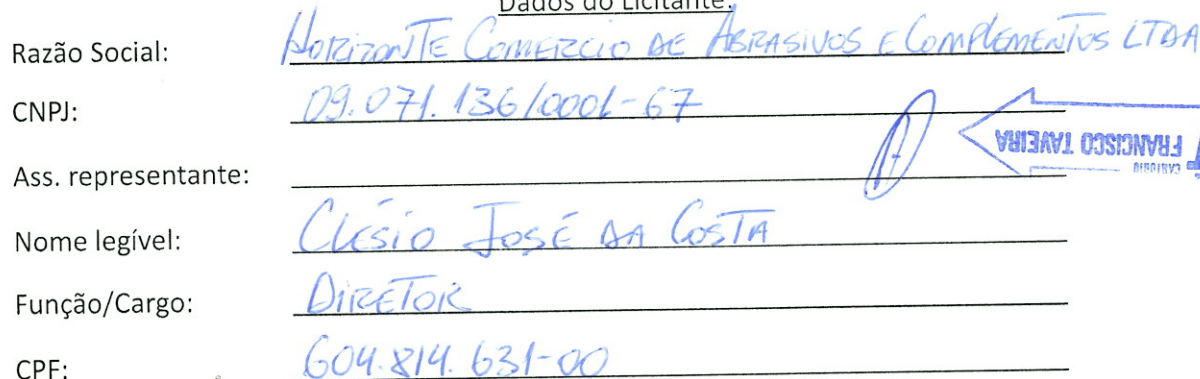 Dados do Licitante:
Razão Social: HORIZONTE COMERCIO DE ABRASIVOS E COMPLEMENTOS LTDA
CNPJ: 09.071.136/0001-67
CARTÓRIO
FRANCISCO TAVEIRA
Ass. representante:
Nome legível: CLÉSIO JOSÉ DA COSTA
Função/Cargo: DIRETOR
CPF: 604.814.631-00